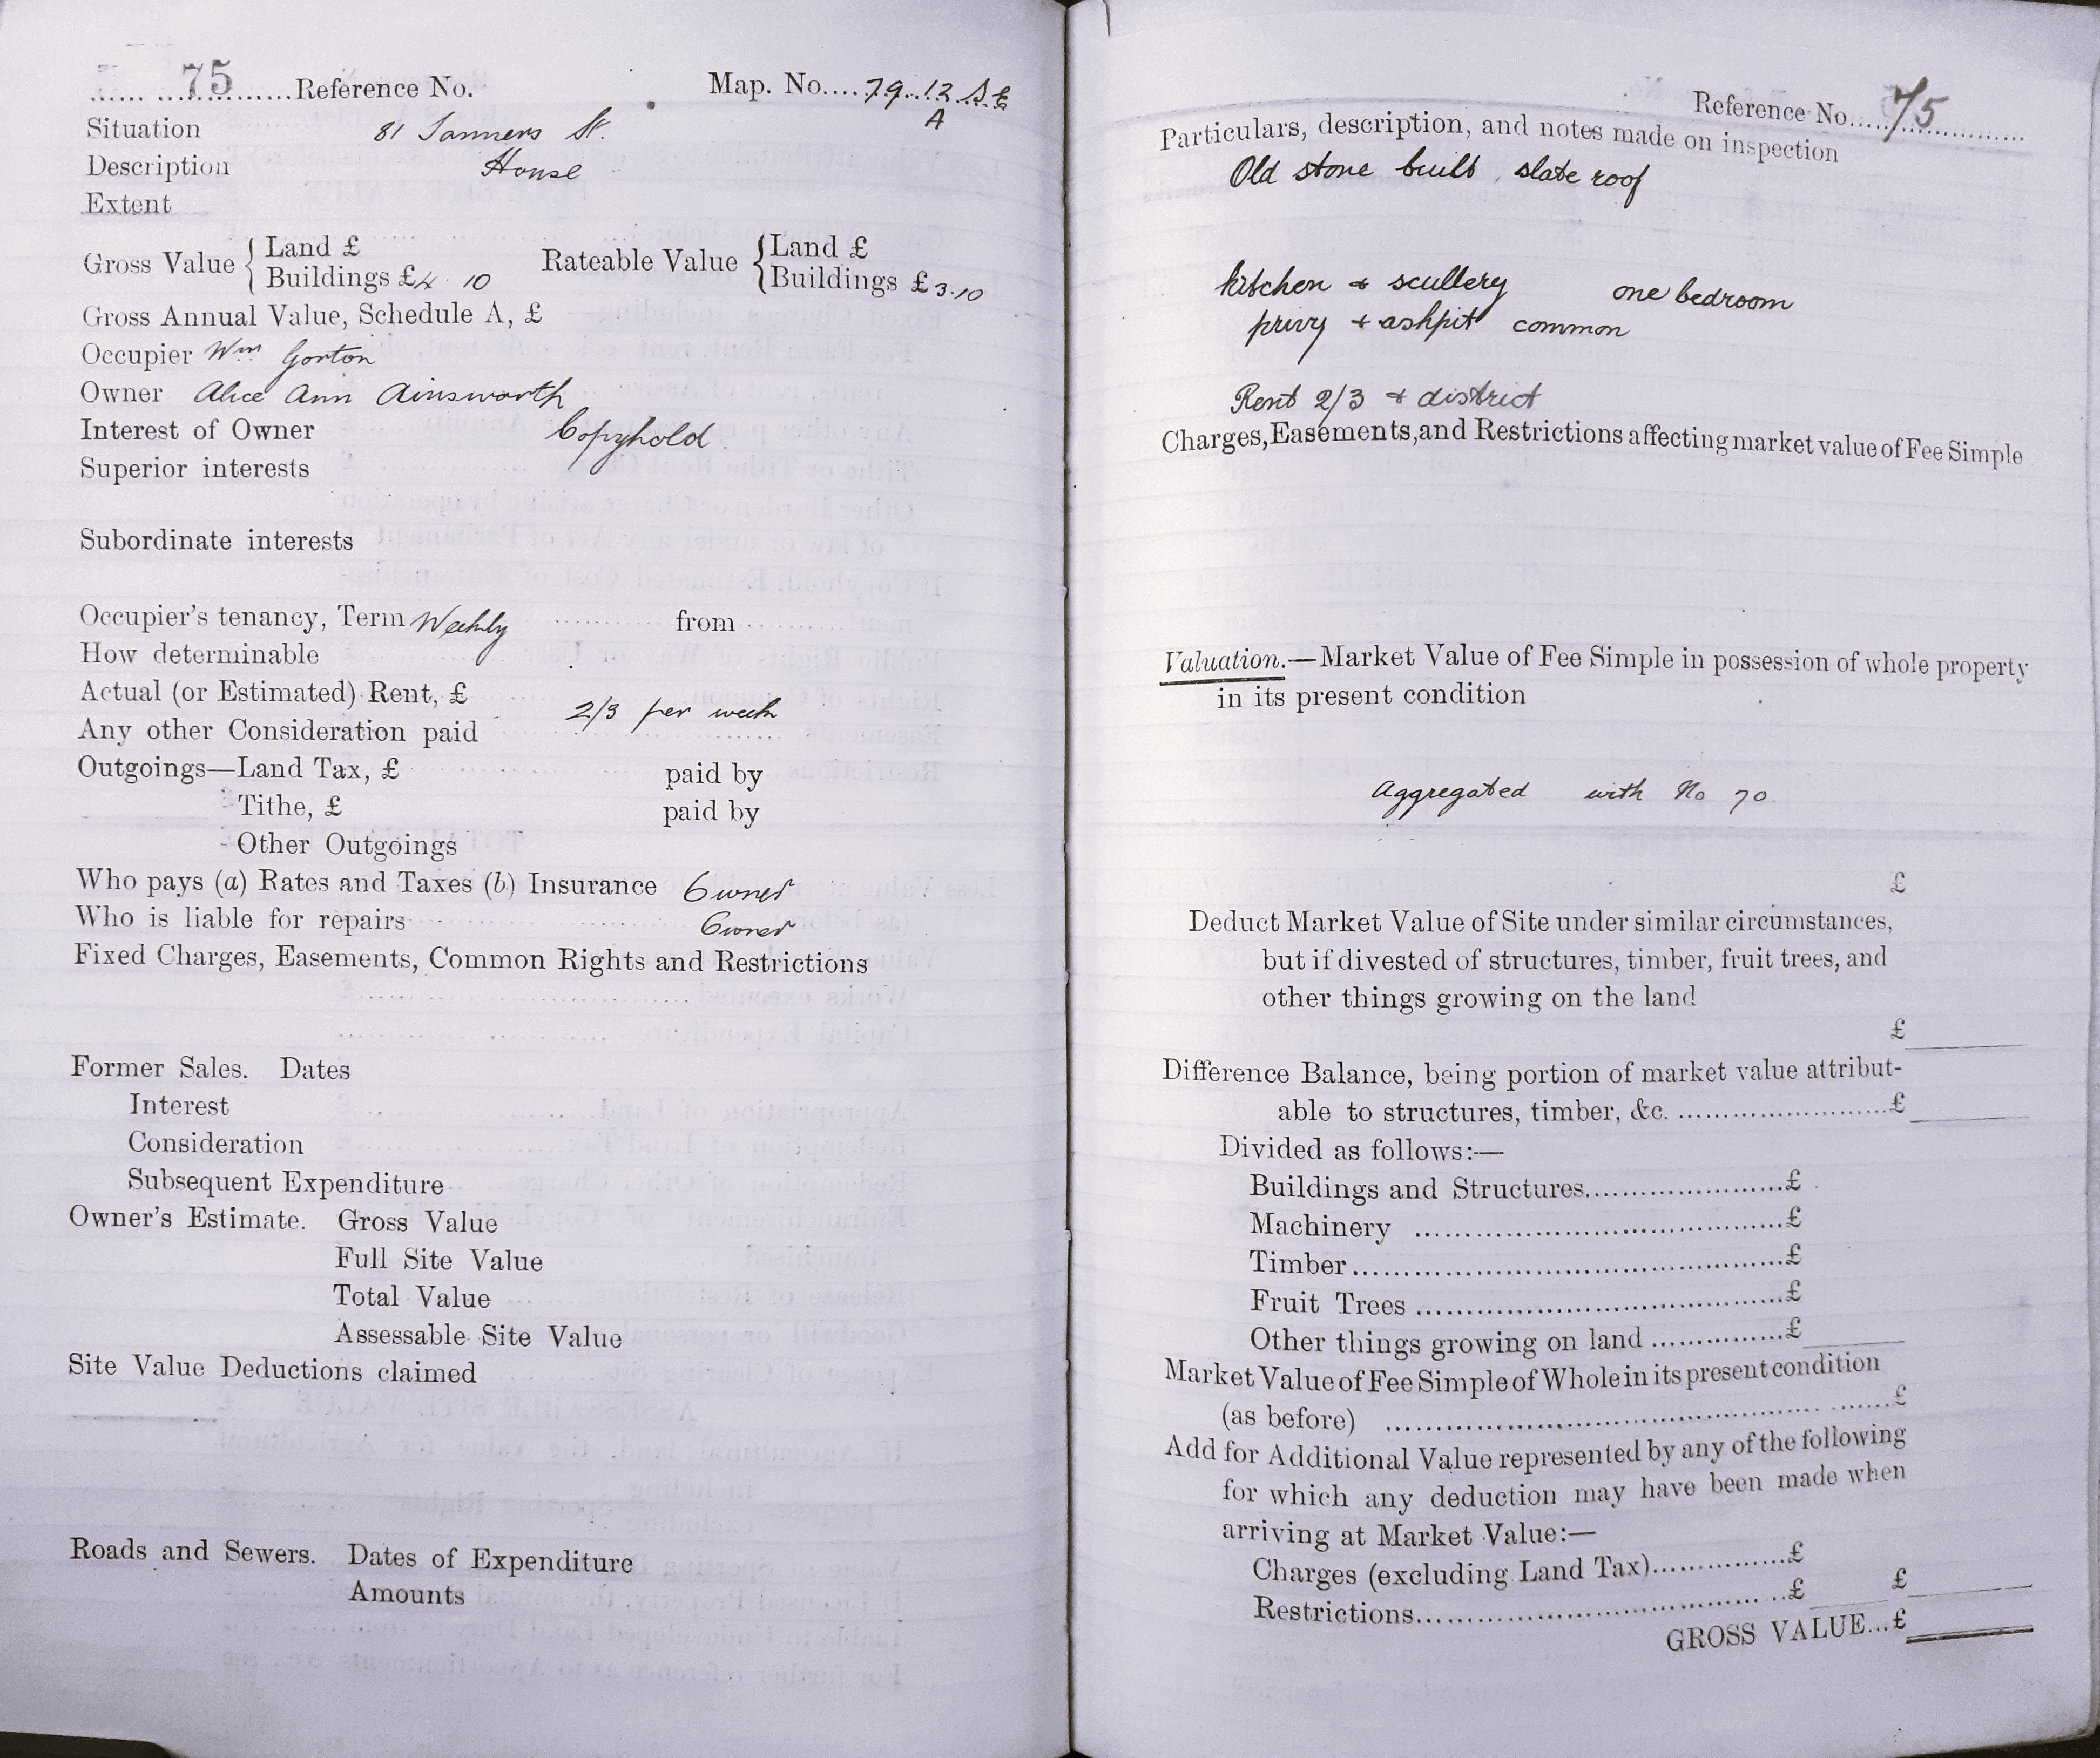 75 Reference No. Map. No. 79.12 S.E
A
Situation 81 Tanners St.
Description House
Extent
Gross Value { Land £
Buildings £4 10
Rateable Value { Land £
Buildings £3.10
Gross Annual Value, Schedule A, £
Occupier Wm Gorton
Owner Alice Ann Ainsworth
Interest of Owner Copyhold
Superior interests
Subordinate interests
Occupier's tenancy, Term Weekly from
How determinable
Actual (or Estimated) Rent, £
2/3 per week
Any other Consideration paid
Outgoings—Land Tax, £ paid by
Tithe, £ paid by
Other Outgoings
Who pays (a) Rates and Taxes (b) Insurance Owner
Who is liable for repairs Owner
Fixed Charges, Easements, Common Rights and Restrictions
Former Sales. Dates
Interest
Consideration
Subsequent Expenditure
Owner's Estimate. Gross Value
Full Site Value
Total Value
Assessable Site Value
Site Value Deductions claimed
Roads and Sewers. Dates of Expenditure
Amounts
Reference No. 75
Particulars, description, and notes made on inspection
Old stone built. slate roof
kitchen + scullery one bedroom
privy + ashpit common
Rent 2/3 + district
Charges, Easements, and Restrictions affecting market value of Fee Simple
Valuation.—Market Value of Fee Simple in possession of whole property
in its present condition
Aggregated with No 70
£
Deduct Market Value of Site under similar circumstances,
but if divested of structures, timber, fruit trees, and
other things growing on the land
£
Difference Balance, being portion of market value attribut-
able to structures, timber, &c. £
Divided as follows:—
Buildings and Structures £
Machinery £
Timber £
Fruit Trees £
Other things growing on land £
Market Value of Fee Simple of Whole in its present condition
(as before) £
Add for Additional Value represented by any of the following
for which any deduction may have been made when
arriving at Market Value:—
Charges (excluding Land Tax) £
Restrictions £ £
GROSS VALUE...£